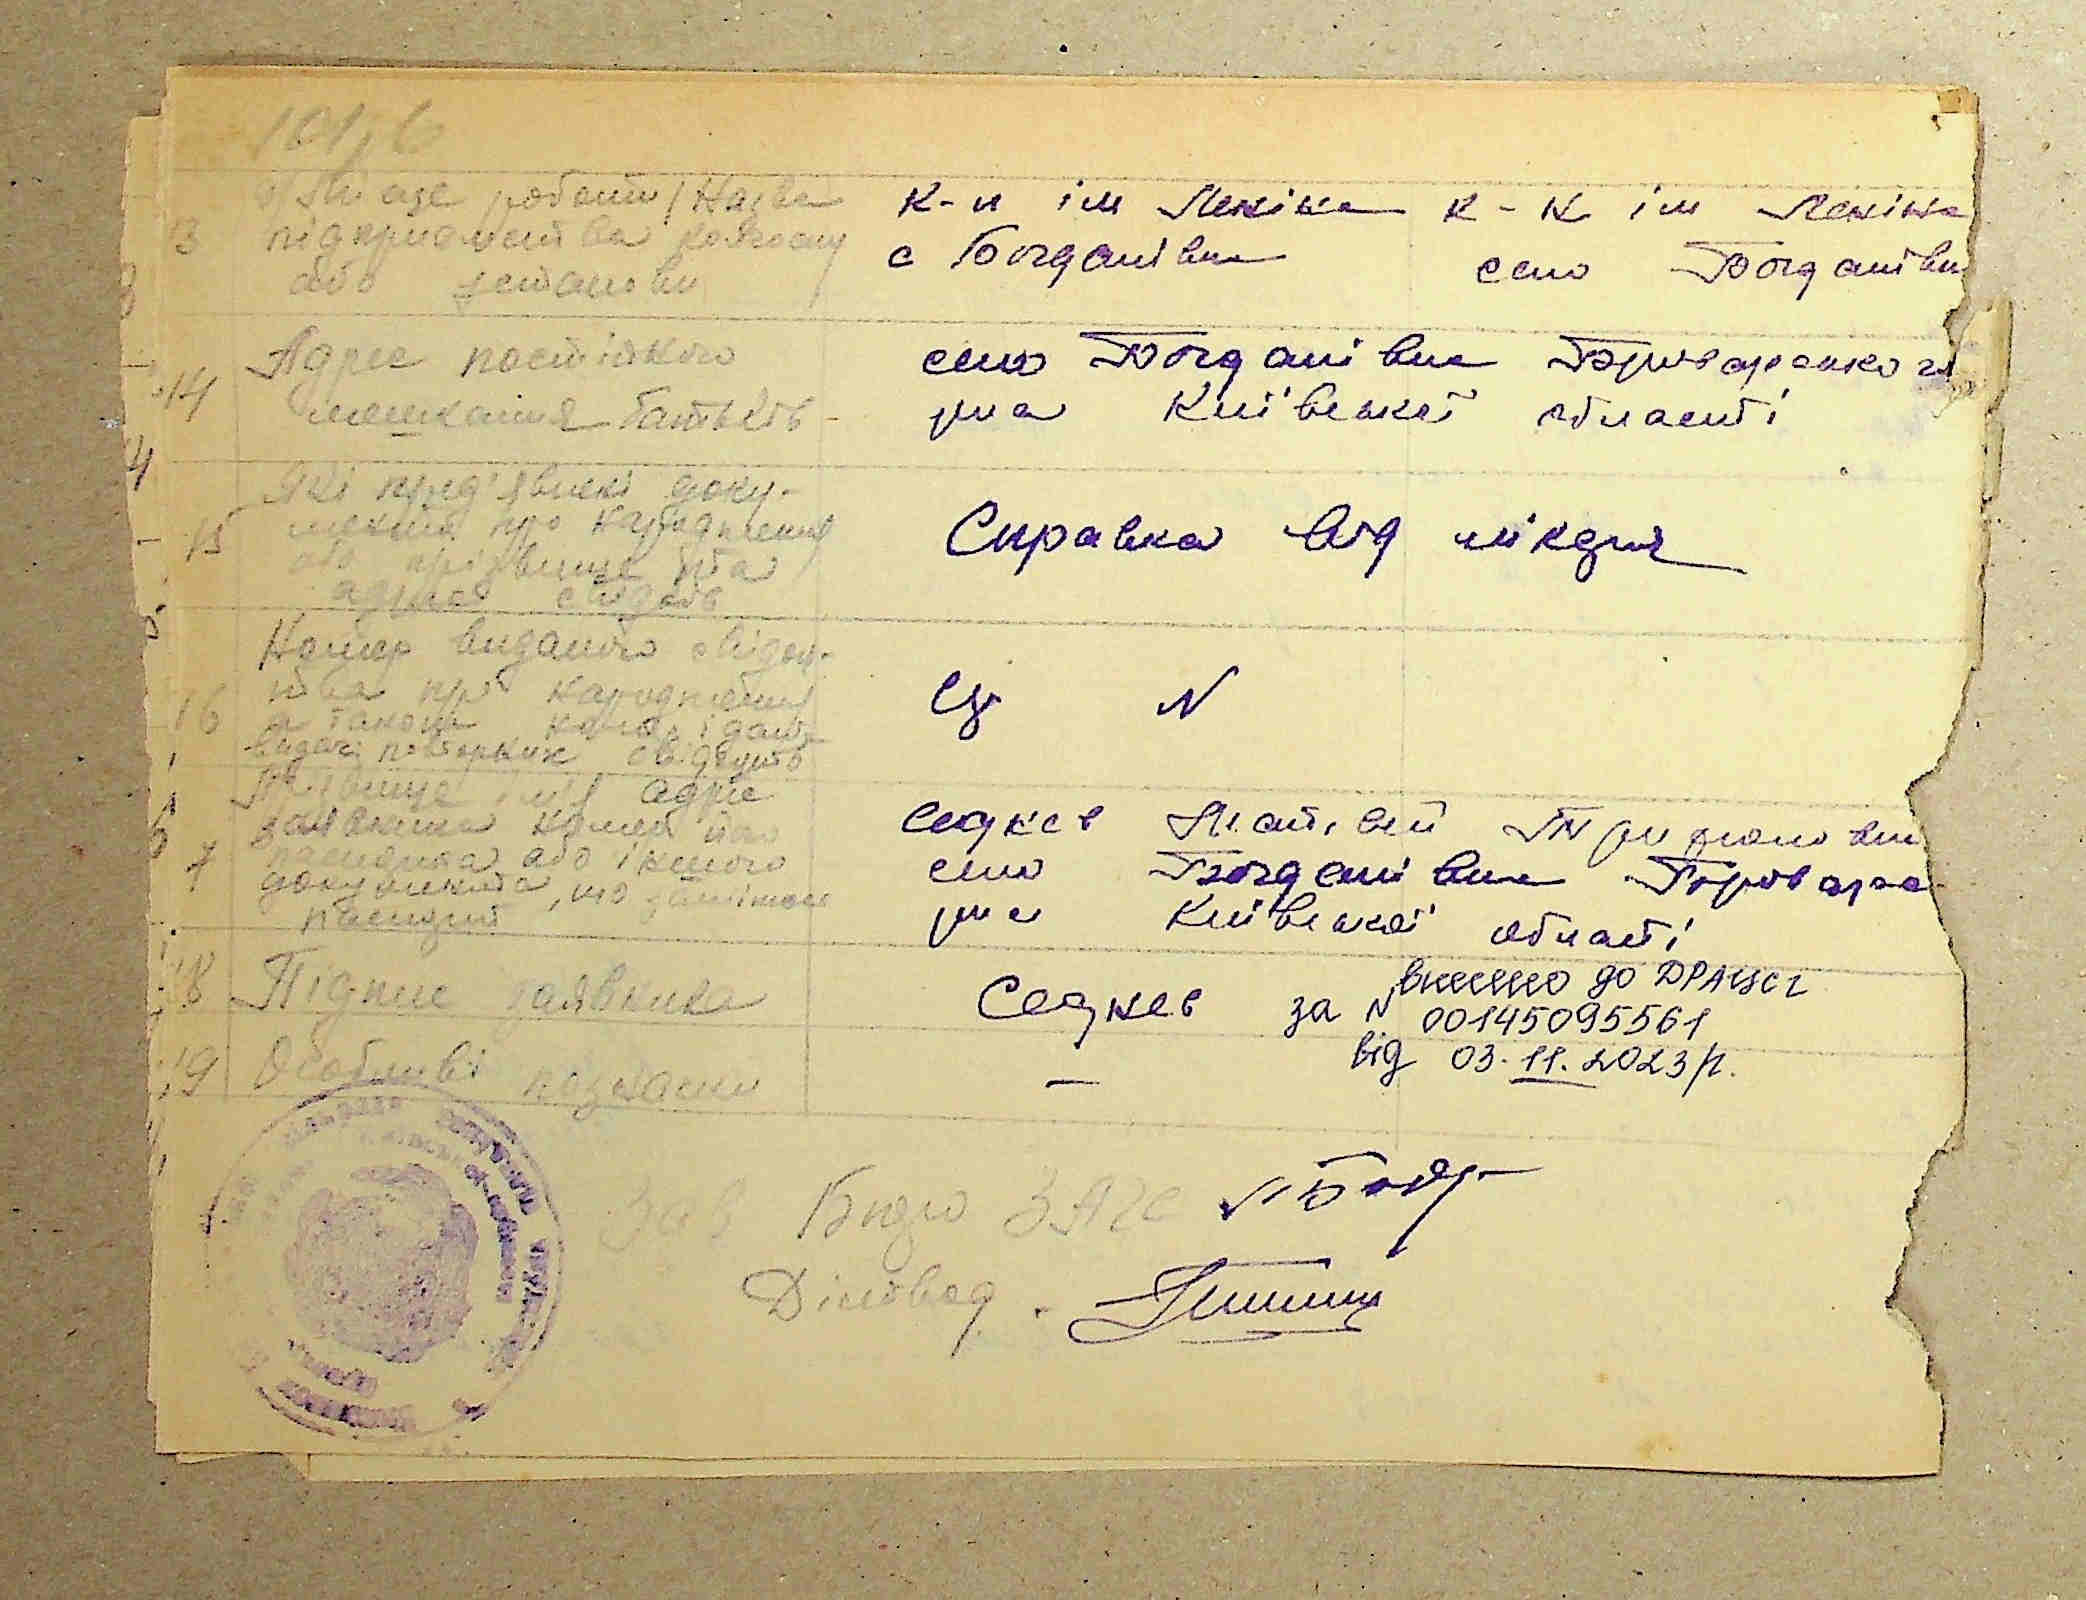 101, 6
13 Місце роботи (Назва підприємства колгоспу або установи)
к-п ім Леніна
с Богданівка
к-к ім Леніна
село Богданівка
14 Адрес постійного
мешкання батьків
село Богданівка Броварського
р-на Київської області
15 Які пред'явлені доку-
менти про народження
або прізвище та
адреса свідків
Справка від лікаря
16 Номер виданого свідоц-
тва про народження
а також номер і дати
видачі повторних свідоцтв
ЕЦ N
17 Прізвище, ім'я адрес
заявника номер його
паспорта або іншого
документа, що замінює
паспорт
Седнев Матвей
село Богданівка Броварс
р-на Київської області
18 Підпис заявника
Седнев
внесено до ДРАЦСГ
за N 00145095561
від 03.11.2023р.
19 Особливі познаски
—
Зав Бюро ЗАГС
Діловод.